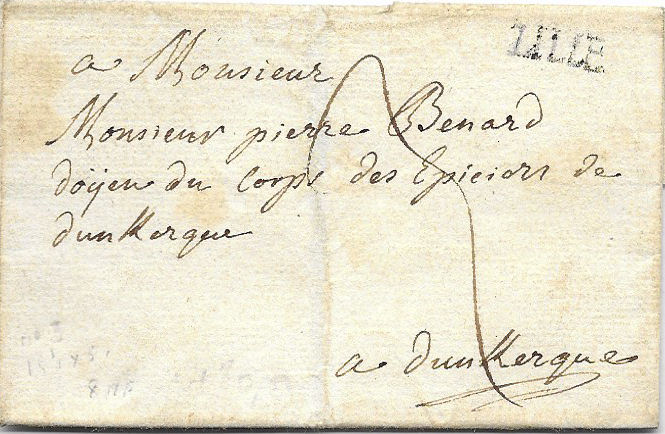 LILLE
a Monsieur
Monsieur pierre Benard
doÿen du Corps des Epiciers de
dunKerque
a dunKerque